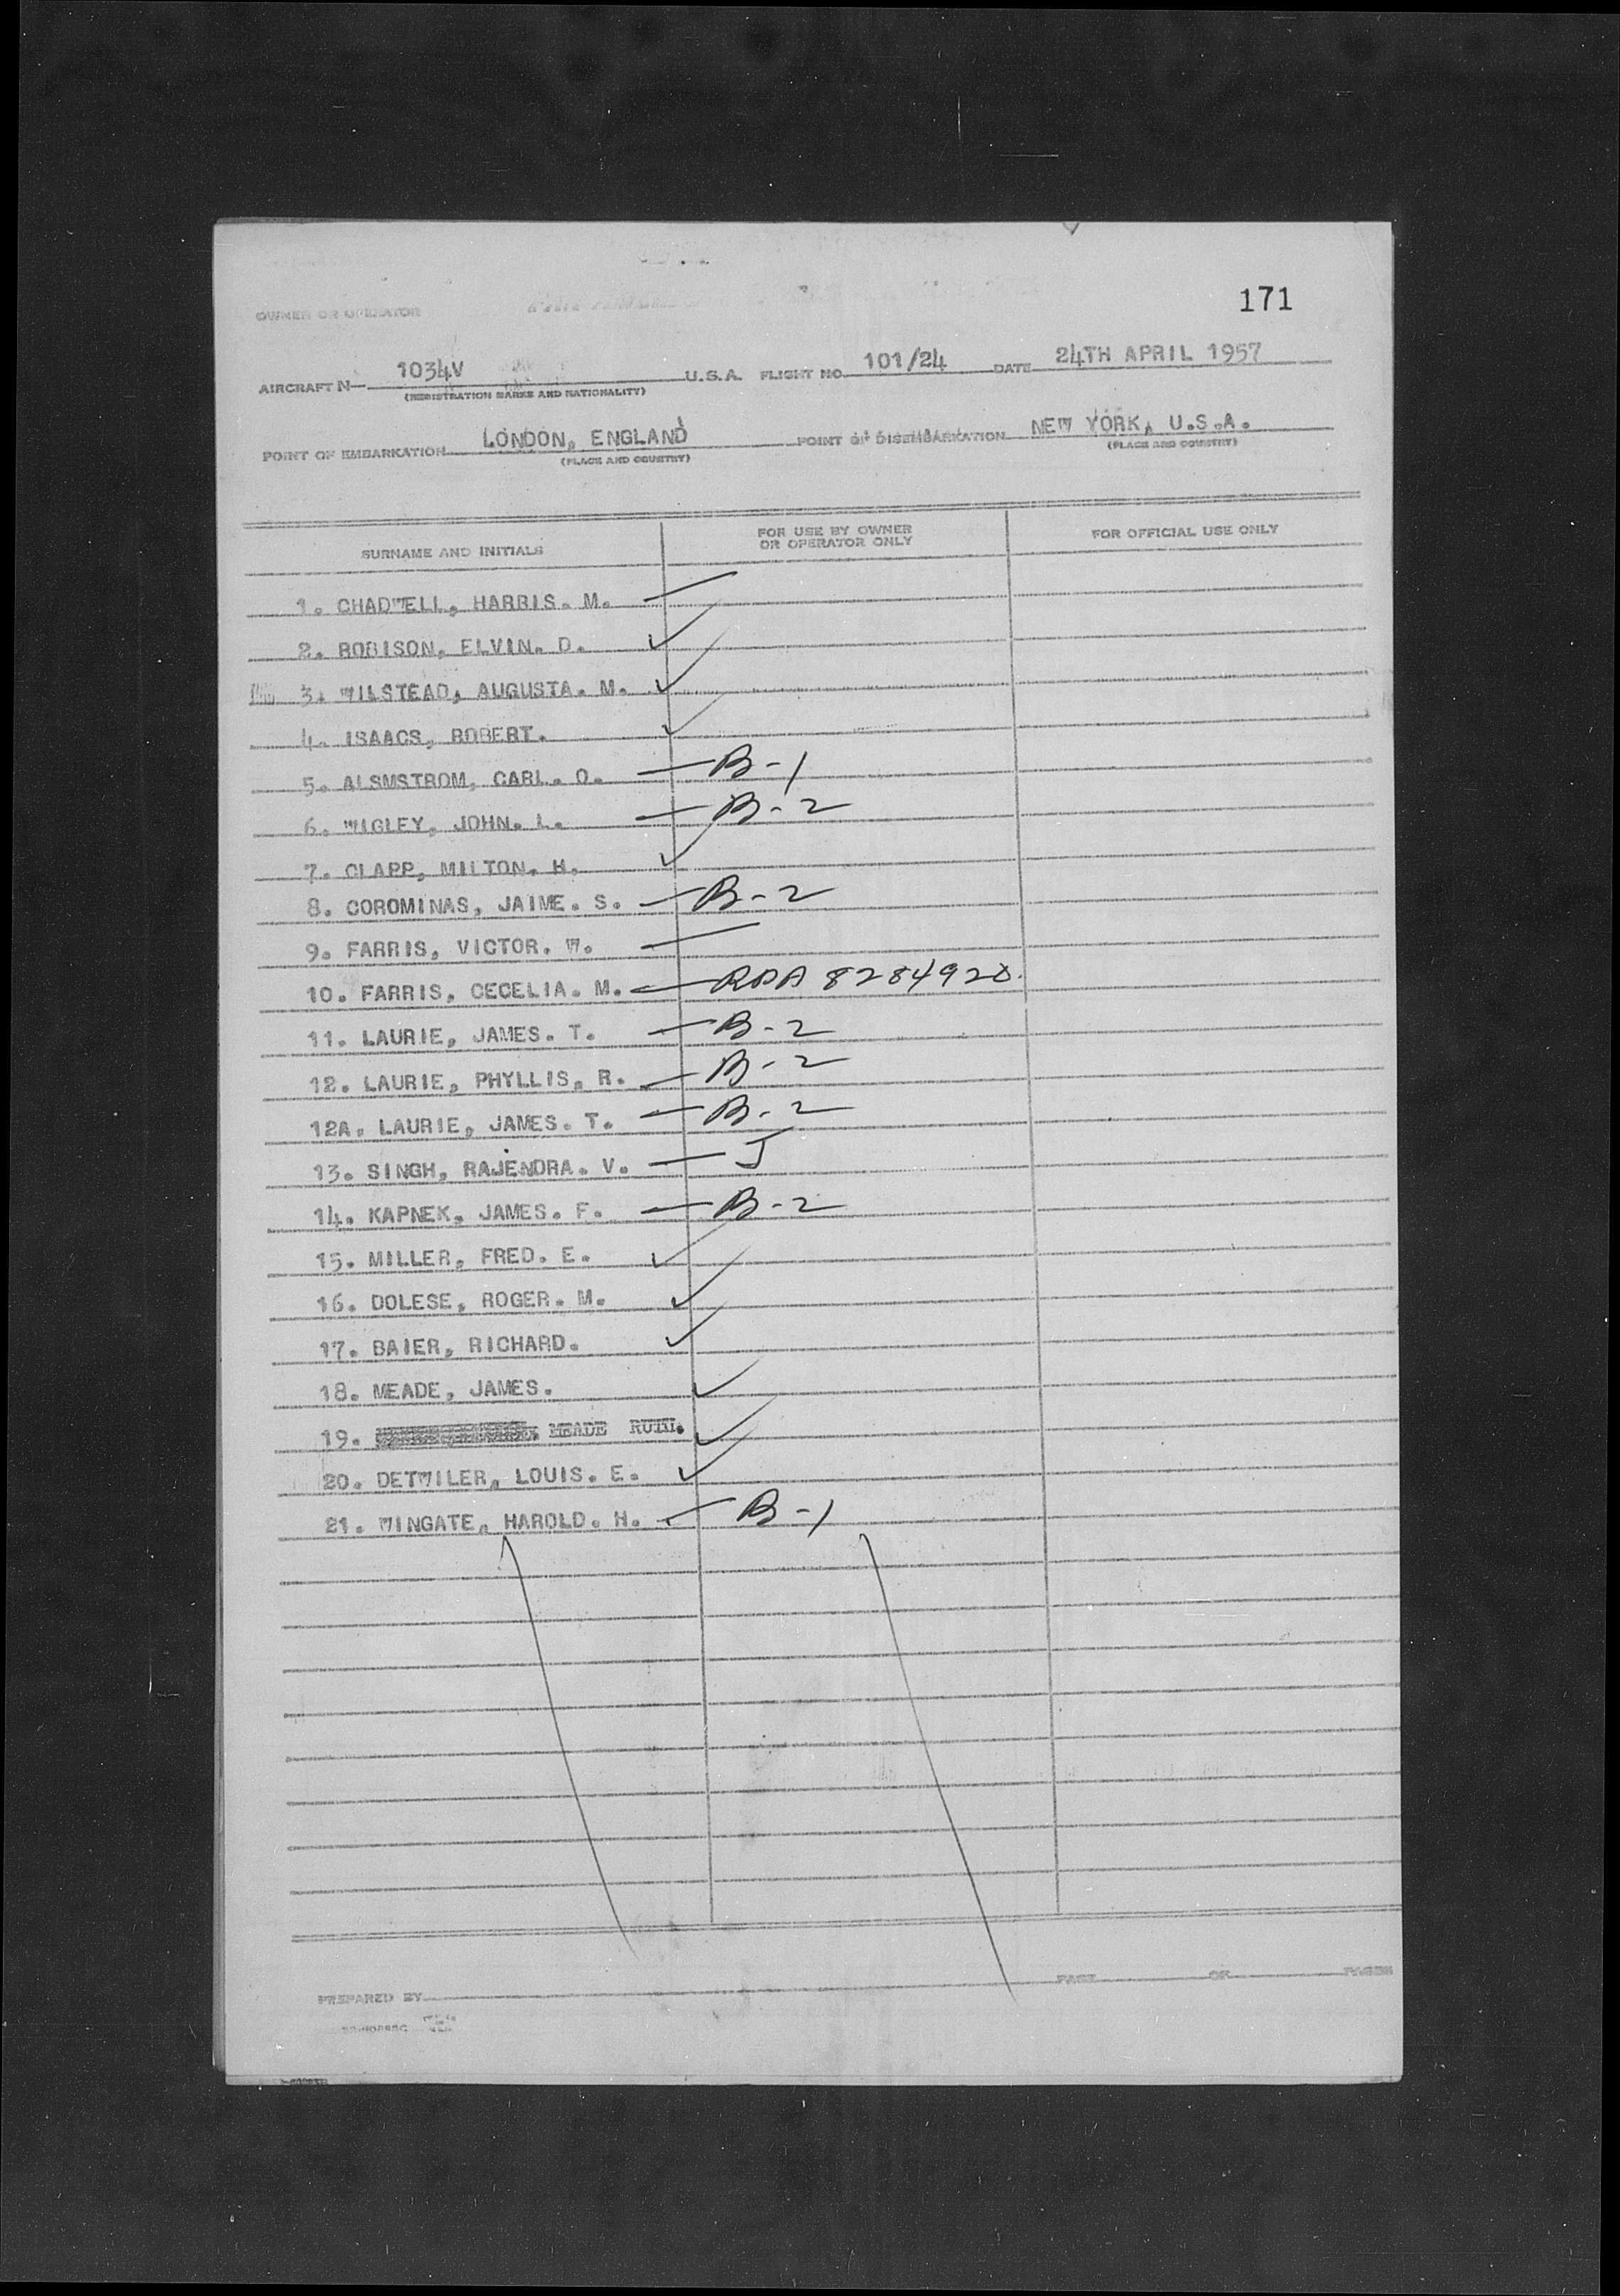 171
OWNER OR OPERATOR
AIRCRAFT N— 1034V U.S.A. FLIGHT NO. 101/24 DATE 24TH APRIL 1957
(REGISTRATION MARKS AND NATIONALITY)
POINT OF EMBARKATION LONDON, ENGLAND POINT OF DISEMBARKATION NEW YORK, U.S.A.
(PLACE AND COUNTRY) (PLACE AND COUNTRY)
SURNAME AND INITIALS FOR USE BY OWNER OR OPERATOR ONLY FOR OFFICIAL USE ONLY
1. CHADWELL, HARRIS. M. —
2. ROBISON, ELVIN. D. ✓
3. WILSTEAD, AUGUSTA. M. ✓
4. ISAACS, ROBERT. ✓
5. ALSMSTROM, CARL. O. — B-1
6. WIGLEY, JOHN. L. — B-2
7. CLAPP, MILTON. H. ✓
8. COROMINAS, JAIME. S. — B-2
9. FARRIS, VICTOR. W. —
10. FARRIS, CECELIA. M. — 8284928
11. LAURIE, JAMES. T. — B-2
12. LAURIE, PHYLLIS, R. — B-2
12A. LAURIE, JAMES. T. — B-2
13. SINGH, RAJENDRA. V. — J
14. KAPNEK, JAMES. F. — B-2
15. MILLER, FRED. E. ✓
16. DOLESE, ROGER. M. ✓
17. BAIER, RICHARD. ✓
18. MEADE, JAMES. ✓
19. MEADE RUTH. ✓
20. DETWILER, LOUIS. E. ✓
21. WINGATE, HAROLD. H. — B-1
PREPARED BY PAGE OF PAGES